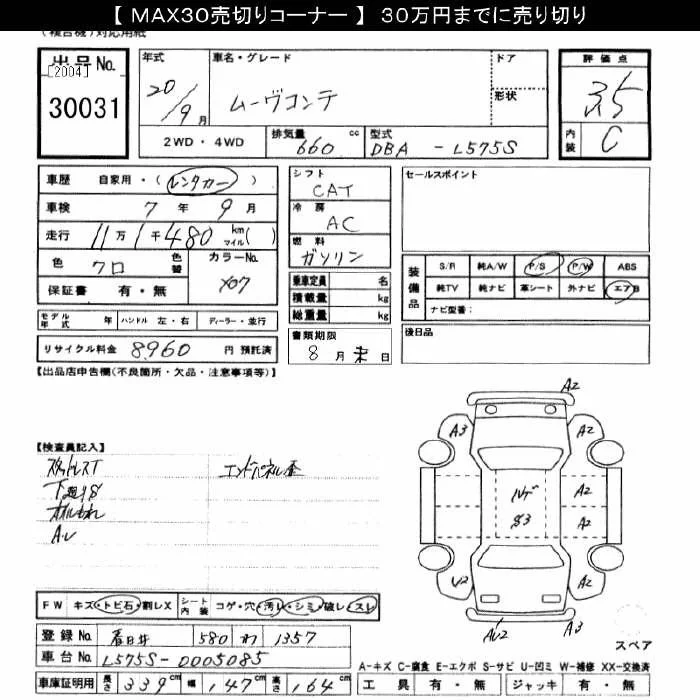 【 MAX30売切りコーナー 】 30万円までに売り切り
(複合機)対応用紙
出品No. 年式 車名・グレード ドア 評価点
[2004]
30031 20/9月 ムーヴコンテ 形状 3.5
2WD・4WD 排気量 660 cc 型式 DBA - L575S 内装 C
車歴 自家用・(レンタカー) シフト CAT セールスポイント
車検 7年 9月 冷房 AC
走行 11万1千480 km マイル( ) 燃料 ガソリン
色 クロ 色替 カラーNo. X07
装備品 S/R 純A/W P/S P/W ABS
保証書 有・無 乗車定員 名 純TV 純ナビ 革シート 外ナビ エアB
積載量 kg ナビ型番:
モデル年式 年 ハンドル 左・右 ディーラー・並行 総重量 kg
リサイクル料金 8960 円 預託済 書類期限 8月末日 後日品
【出品店申告欄(不良箇所・欠品・注意事項等)】
A2
A3 A2
【検査員記入】
スタットレスT エンドパネル歪
下廻りS
オイルもれ
A.U
A2
A2
U2 A2
AU2 A3
FW キズ・トビ石・割レX シート内装 コゲ・穴・汚レ・シミ・破レ・スレ
登録No. 春日井 580 わ 1357
スペア
車台No. L575S-0005085
A-キズ C-腐食 E-エクボ S-サビ U-凹ミ W-補修 XX-交換済
車庫証明用 長さ 339cm 幅 147cm 高さ 164cm 工具 有・無 ジャッキ 有・無